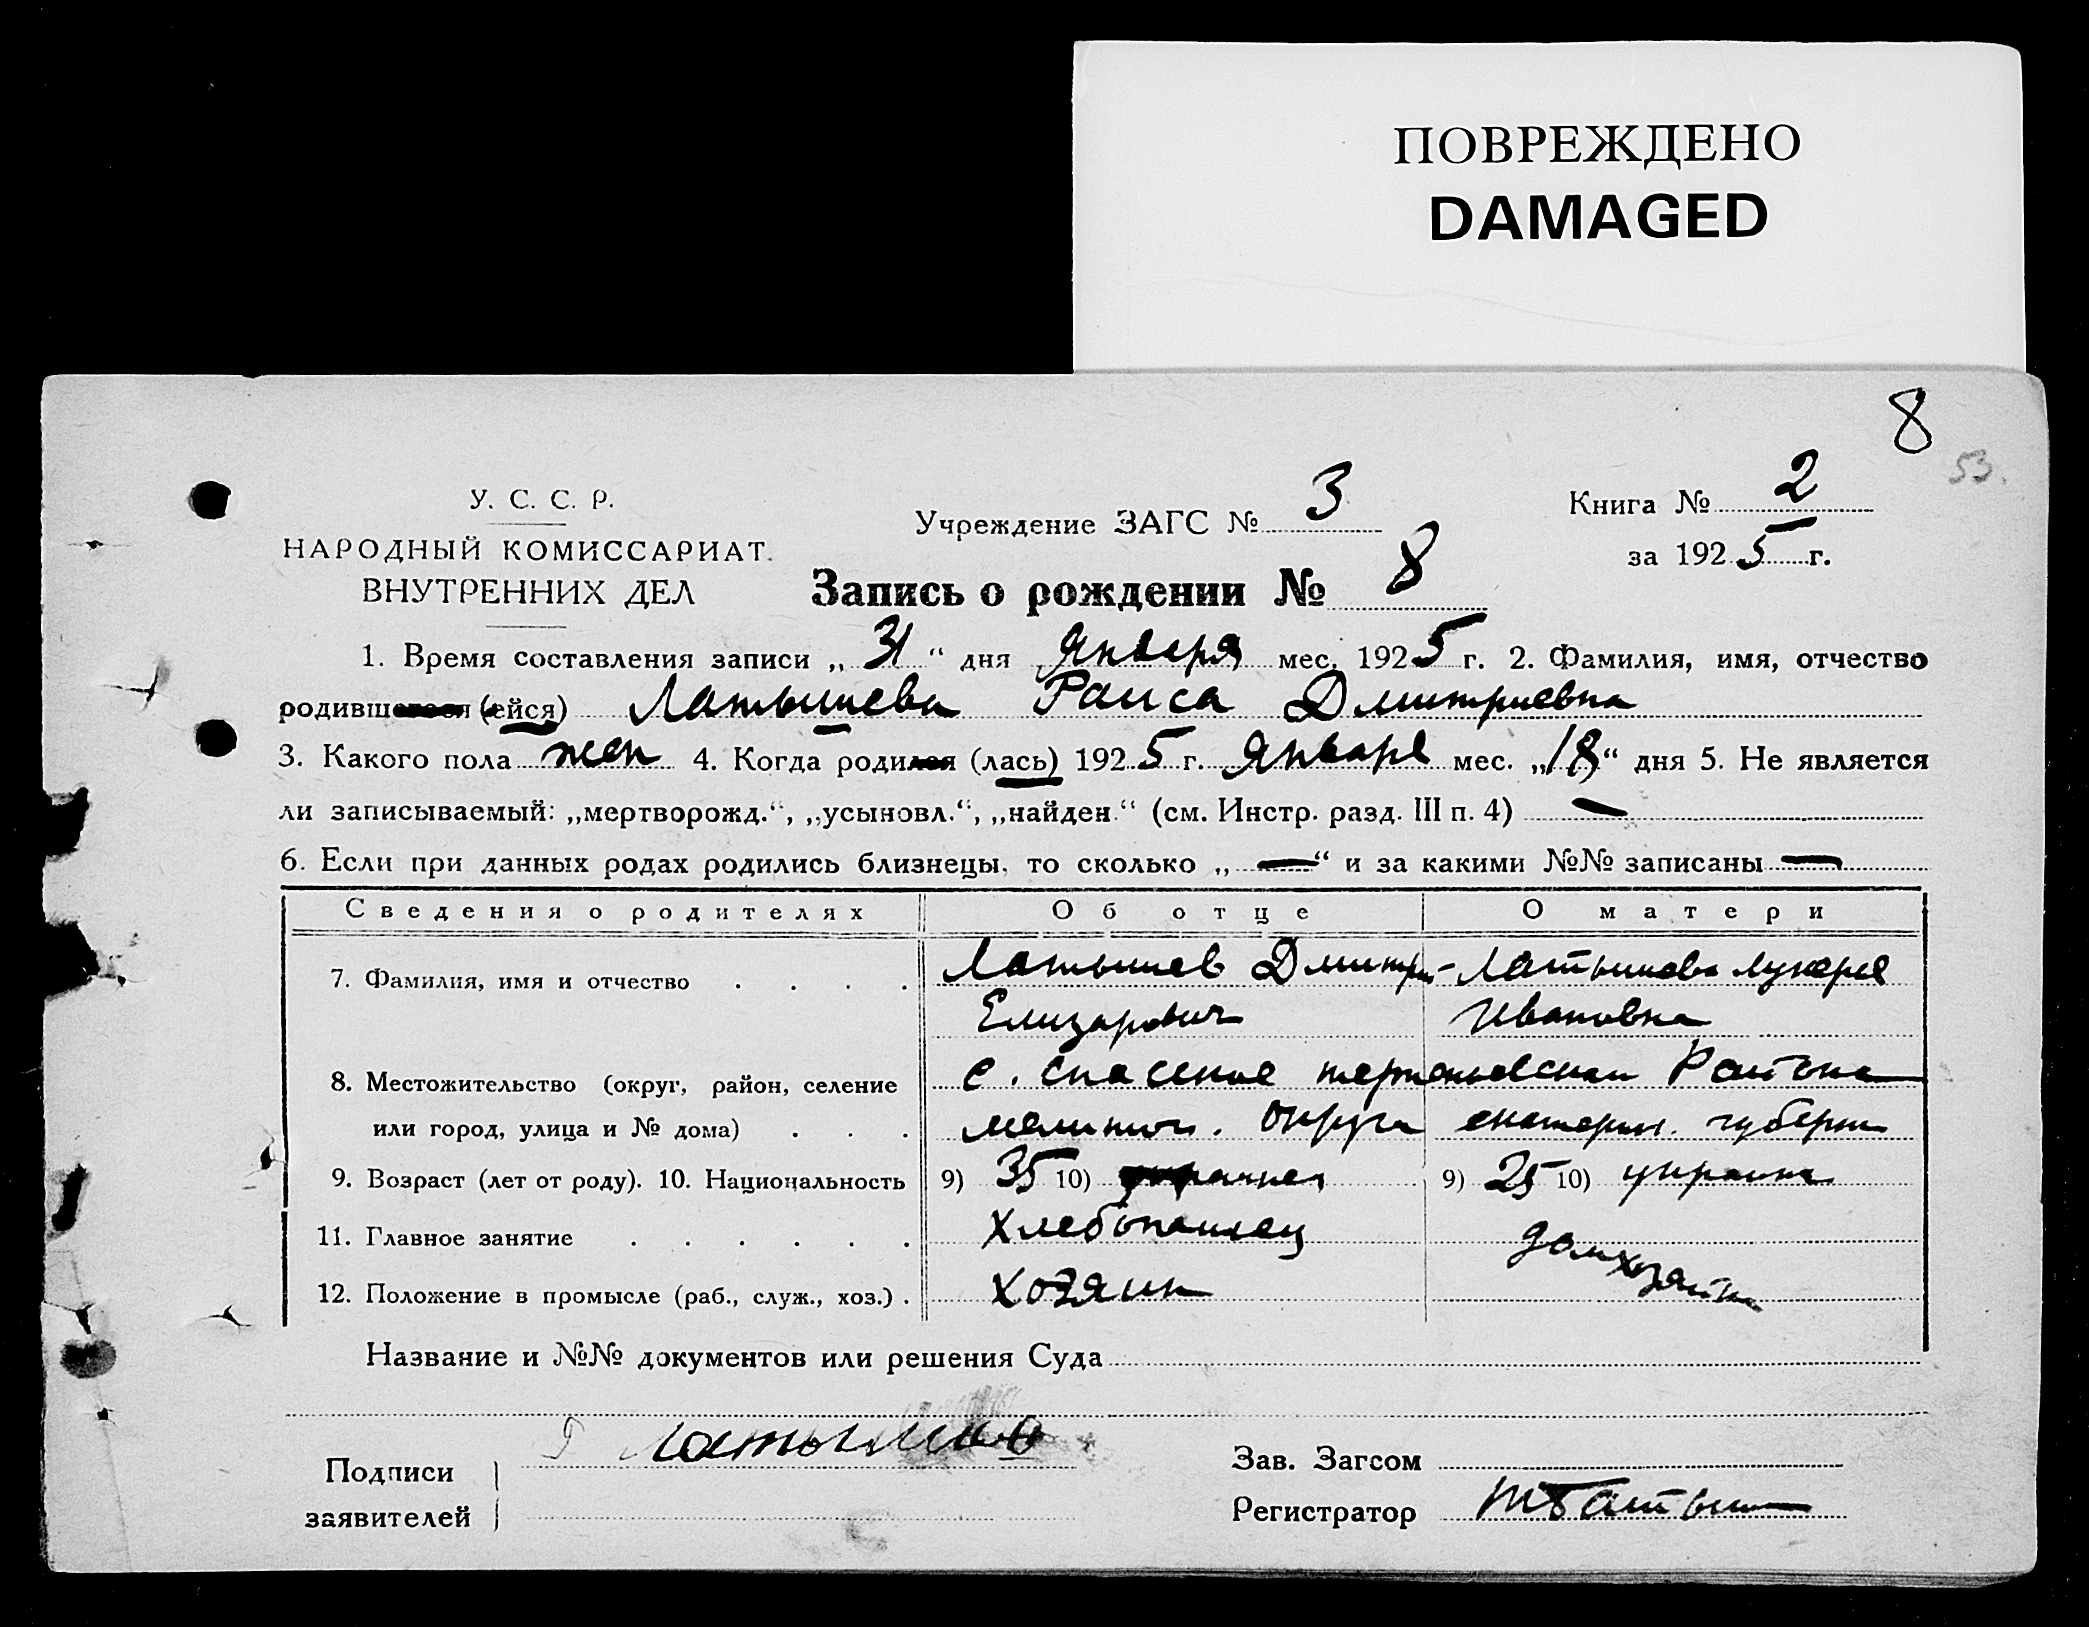 ПОВРЕЖДЕНО
DAMAGED
8
53.
У. С. С. Р.
НАРОДНЫЙ КОМИССАРИАТ
ВНУТРЕННИХ ДЕЛ
Учреждение ЗАГС № 3
Книга № 2
за 1925 г.
Запись о рождении № 8
1. Время составления записи „31“ дня Января мес. 1925 г. 2. Фамилия, имя, отчество
родившегося (ейся) Латышева Раиса Дмитриевна
3. Какого пола жен 4. Когда родился (лась) 1925 г. Января мес. „18“ дня 5. Не является
ли записываемый: „мертворожд.“, „усыновл.“, „найден.“ (см. Инстр. разд. III п. 4) —
6. Если при данных родах родились близнецы, то сколько „—“ и за какими №№ записаны —
Сведения о родителях Об отце О матери
7. Фамилия, имя и отчество . . . . Латышев Дмитри- Латышева Лукерья
Елизарович Ивановна
8. Местожительство (округ, район, селение с. Спасское Района
или город, улица и № дома) . . . мелитоп. округа екатерин. губерни
9. Возраст (лет от роду). 10. Национальность 9) 35 10) 9) 25 10) украинка
11. Главное занятие . . . . . . Хлебопашец домхозяйка
12. Положение в промысле (раб., служ., хоз.) . хозяин
Название и №№ документов или решения Суда
Подписи
заявителей
Латышев
Зав. Загсом
Регистратор